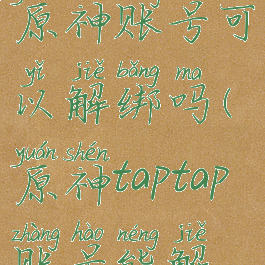 原神账号可
yǐ jiě bǎng ma
以解绑吗(
yuán shén
原神taptap
zhàng hào néng jiě
账号能解